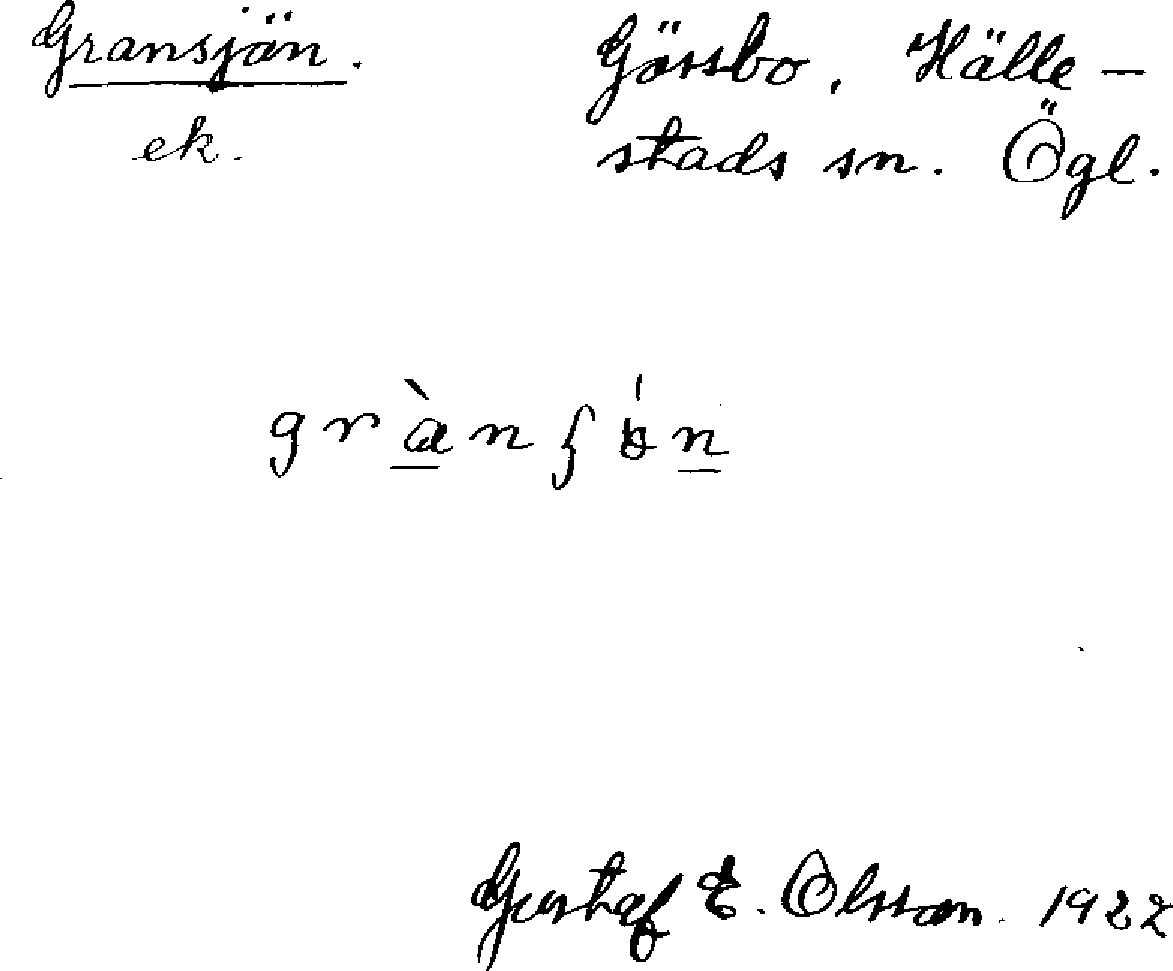 Gransjön. Görsbo, Hälle-
ek. stads sn. Ögl.
grànʃón
Gustaf E. Olsson. 1922